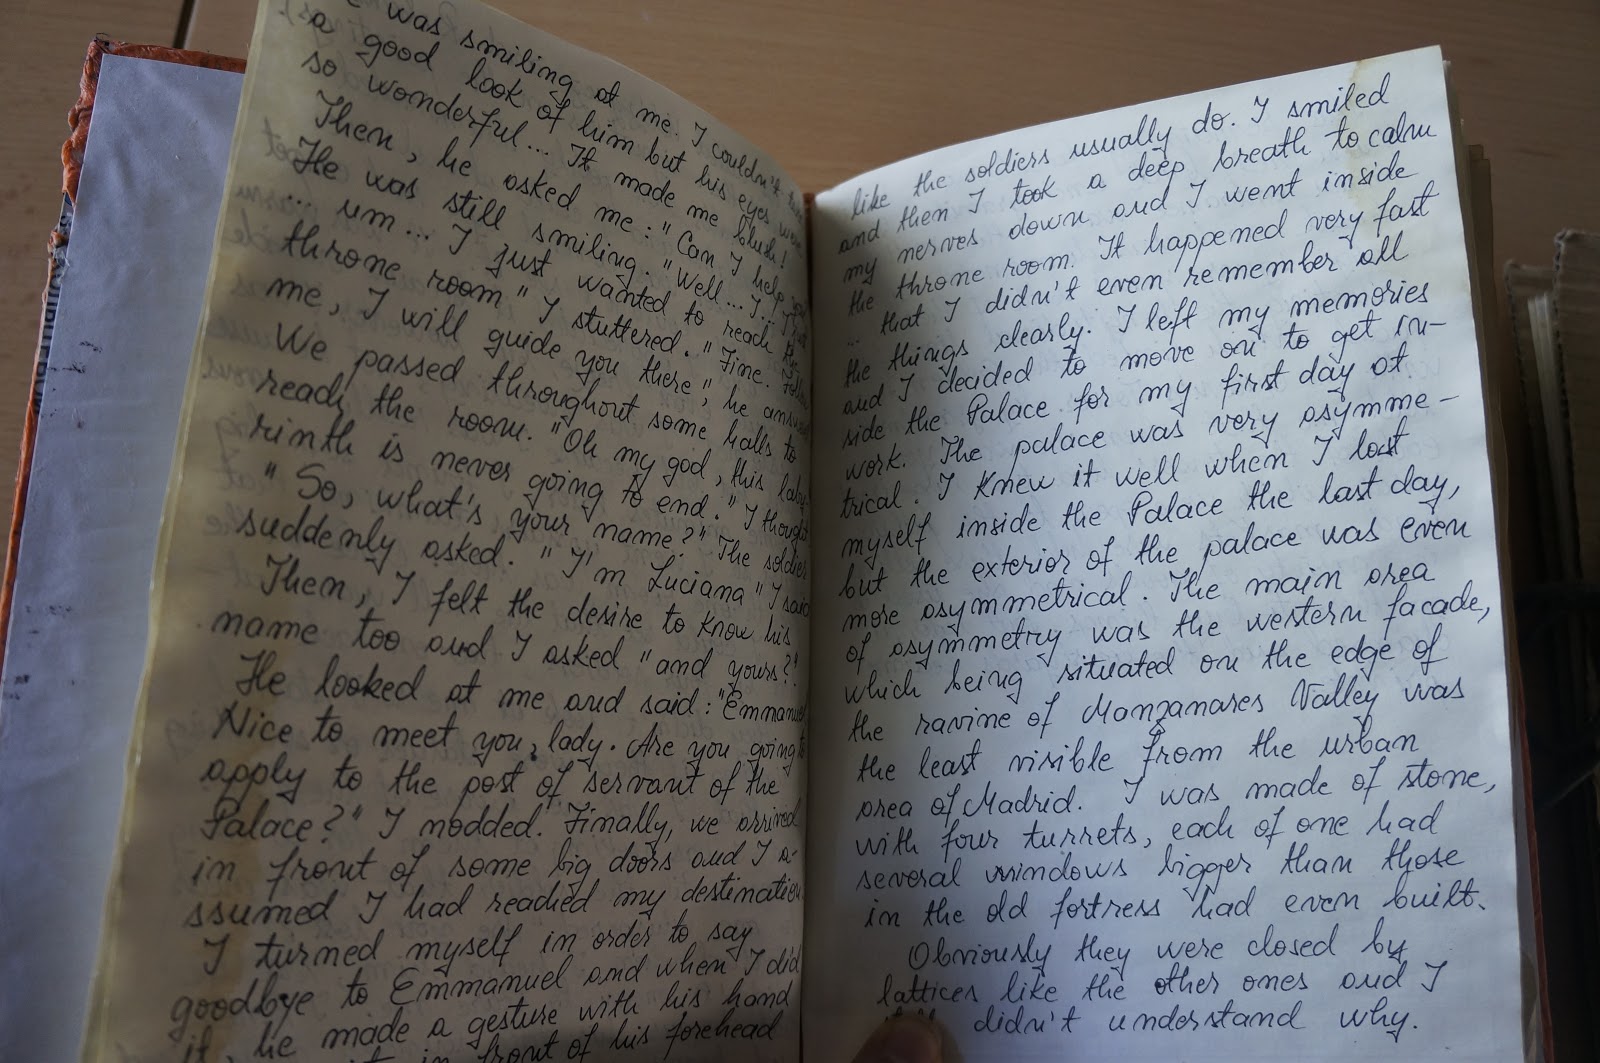 was smiling at me. I couldn't
a good look of him but his eyes
so wonderful... It made me blush!
Then, he asked me: "Can I help
He was still smiling. "Well... I...
... um... I just wanted to reach the
throne room" I stuttered. "Fine. Follow
me, I will guide you there", he
We passed throughout some halls to
reach the room. "Oh my god, this laby
rinth is never going to end." I thought
"So, what's your name?" The soldier
suddenly asked. "I'm Luciana" I said
Then, I felt the desire to know his
name too and I asked "and yours?".
He looked at me and said: "Emmanuel
Nice to meet you, lady. Are you going to
apply to the post of servant of the
Palace?" I nodded. Finally, we arrived
in front of some big doors and I a-
ssumed I had reached my destination
I turmed myself in order to say
goodbye to Emmanuel and when I did
it, he made a gesture with his hand
in front of his forehead
like the soldiers usually do. I smiled
and then I took a deep breath to calm
my nerves down and I went inside
the throne room. It happened very fast
... that I didn't even remember all
the things clearly. I left my memories
and I decided to move on to get in-
side the Palace for my first day at
work. The palace was very asymme-
trical. I knew it well when I lost
myself inside the Palace the last day,
but the exterior of the palace was even
more asymmetrical. The main area
of asymmetry was the western facade,
which being situated on the edge of
the ravine of Manzanares Valley was
the least visible from the urban
area of Madrid. I was made of stone,
with four turrets, each of one had
several windows bigger than those
in the old fortress had even built.
Obviously they were closed by
lattices like the other ones and I
didn't understand why.